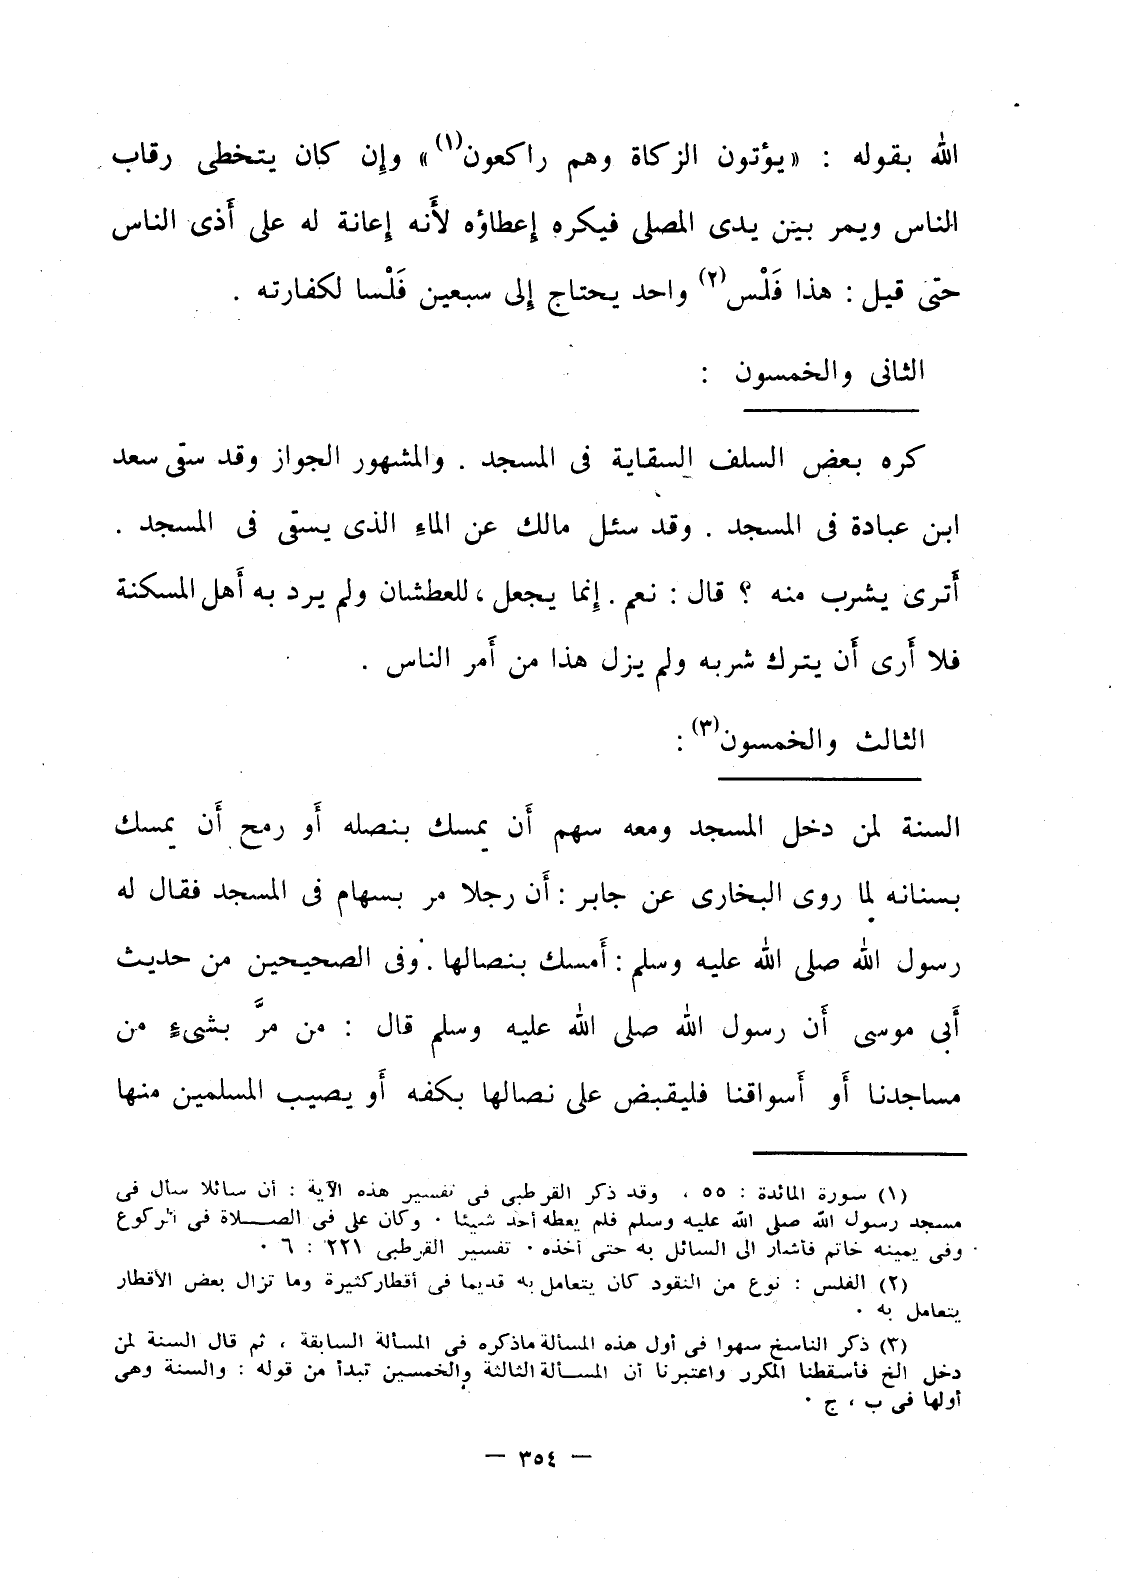 الله بقوله : «يؤتون الزكاة وهم راكعون(١)» وإن كان يتخطى رقاب
الناس ويمر بين يدى المصلى فيكره إعطاؤه لأَنه إعانة له على أَذى الناس
حتى قيل : هذا فَلْس(٢) واحد يحتاج إلى سبعين فَلْسا لكفارته .
الثانى والخمسون :
كره بعض السلف السقاية فى المسجد . والمشهور الجواز وقد سقى سعد
ابن عبادة فى المسجد . وقد سئل مالك عن الماءِ الذى يسقى فى المسجد .
أَترى يشرب منه ؟ قال : نعم . إنما يجعل ، للعطشان ولم يرد به أَهل المسكنة
فلا أَرى أَن يترك شربه ولم يزل هذا من أَمر الناس .
الثالث والخمسون(٣) :
السنة لمن دخل المسجد ومعه سهم أَن يمسك بنصله أَو رمح أَن يمسك
بسنانه لما روى البخارى عن جابر : أَن رجلا مر بسهام فى المسجد فقال له
رسول الله صلى الله عليه وسلم : أَمسك بنصالها . وفى الصحيحين من حديث
أَبى موسى أَن رسول الله صلى الله عليه وسلم قال : من مرَّ بشىءٍ من
مساجدنا أَو أَسواقنا فليقبض على نصالها بكفه أَو يصيب المسلمين منها
(١) سورة المائدة : ٥٥ ، وقد ذكر القرطبى فى تفسير هذه الآية : أن سائلا سأل فى
مسجد رسول الله صلى الله عليه وسلم فلم يعطه أحد شيئا . وكان على فى الصلاة فى الركوع
وفى يمينه خاتم فأشار الى السائل به حتى أخذه . تفسير القرطبى ٢٢١ : ٦ .
(٢) الفلس : نوع من النقود كان يتعامل به قديما فى أقطار كثيرة وما تزال بعض الأقطار
يتعامل به .
(٣) ذكر الناسخ سهوا فى أول هذه المسألة ماذكره فى المسألة السابقة ، ثم قال السنة لمن
دخل الخ فأسقطنا المكرر واعتبرنا أن المسألة الثالثة والخمسين تبدأ من قوله : والسنة وهى
أولها فى ب ، ج .
— ٣٥٤ —